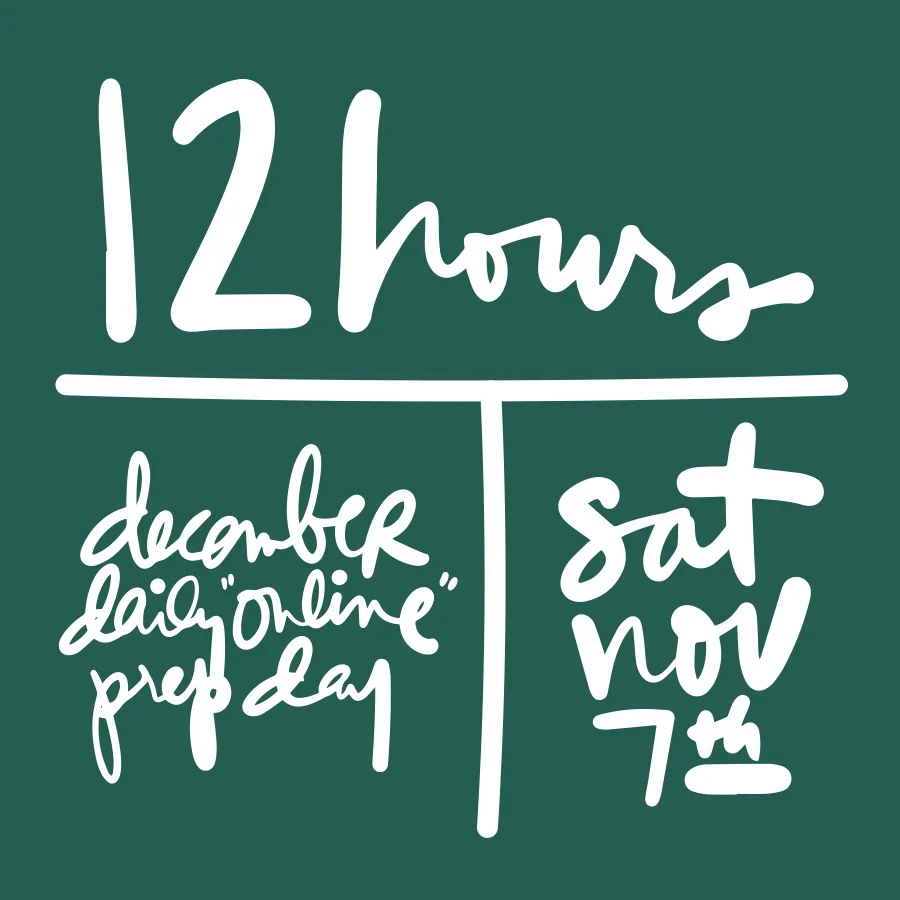 12 hours
december
daily "online"
prep day
sat
nov
7th